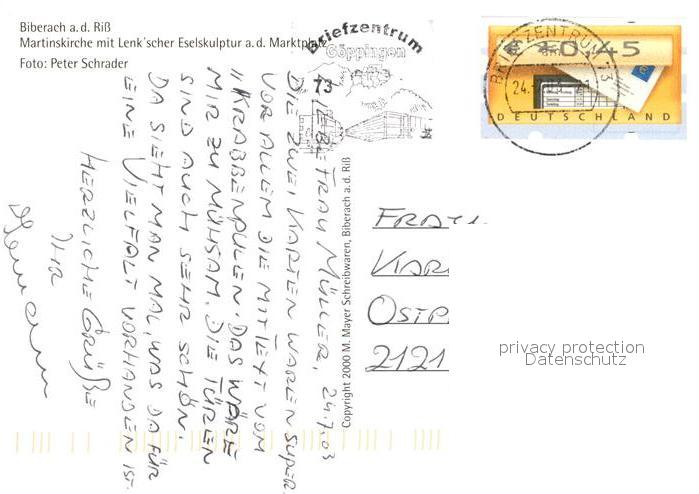 Biberach a.d. Riß
Martinskirche mit Lenk´scher Eselskulptur a.d. Marktplatz
Foto: Peter Schrader
Briefzentrum
Göppingen
73
BRIEFZENTRUM 73
24.
€ *0,45
DEUTSCHLAND
LIEBE FRAU MÜLLER, 24.7.03
DIE ZWEI KARTEN WAREN SUPER.
VOR ALLEM DIE MIT TEXT VOM
"KRABBENPULEN". DAS WÄRE
MIR ZU MÜHSAM. DIE TÜREN
SIND AUCH SEHR SCHÖN.
DA SIEHT MAN MAL, WAS DA FÜR
EINE VIELFALT VORHANDEN IST.
HERZLICHE GRÜßE
IHR
Copyright 2000 M. Mayer Schreibwaren, Biberach a.d. Riß
FRAU
KAR
OSTP
2121
privacy protection
Datenschutz